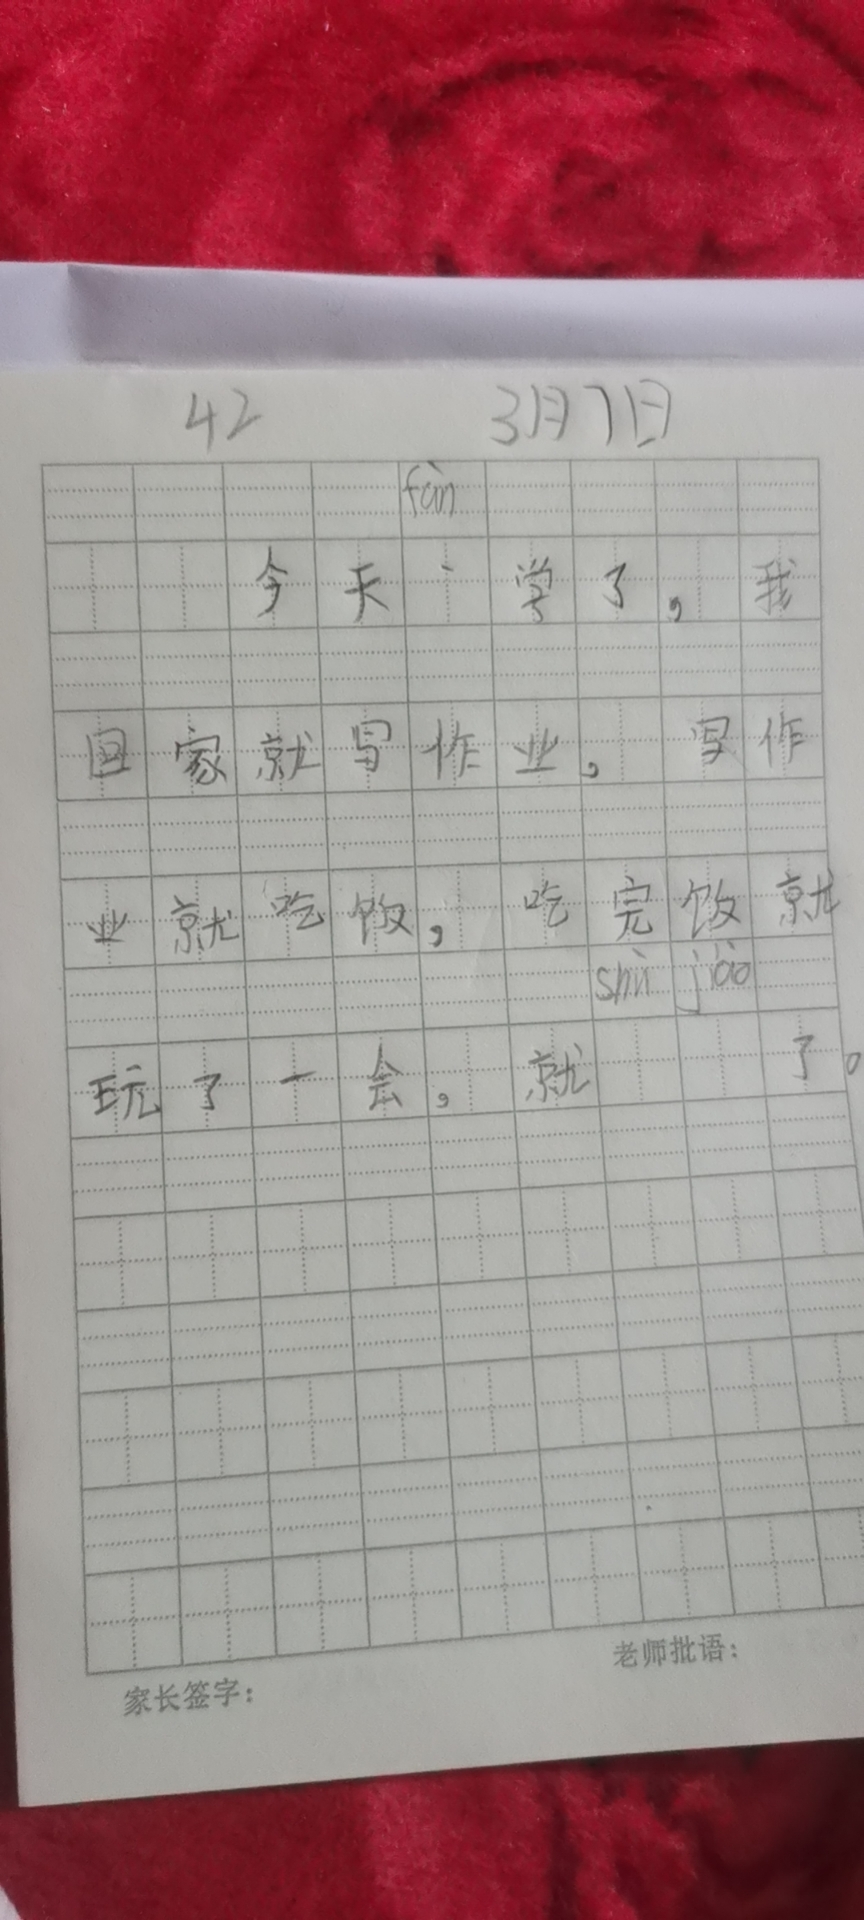 42 3月7日
fàn
今天丶学了，我
回家就写作业，写作
业就吃饭，吃完饭就
shuì jiào
玩了一会，就 了。
家长签字： 老师批语：